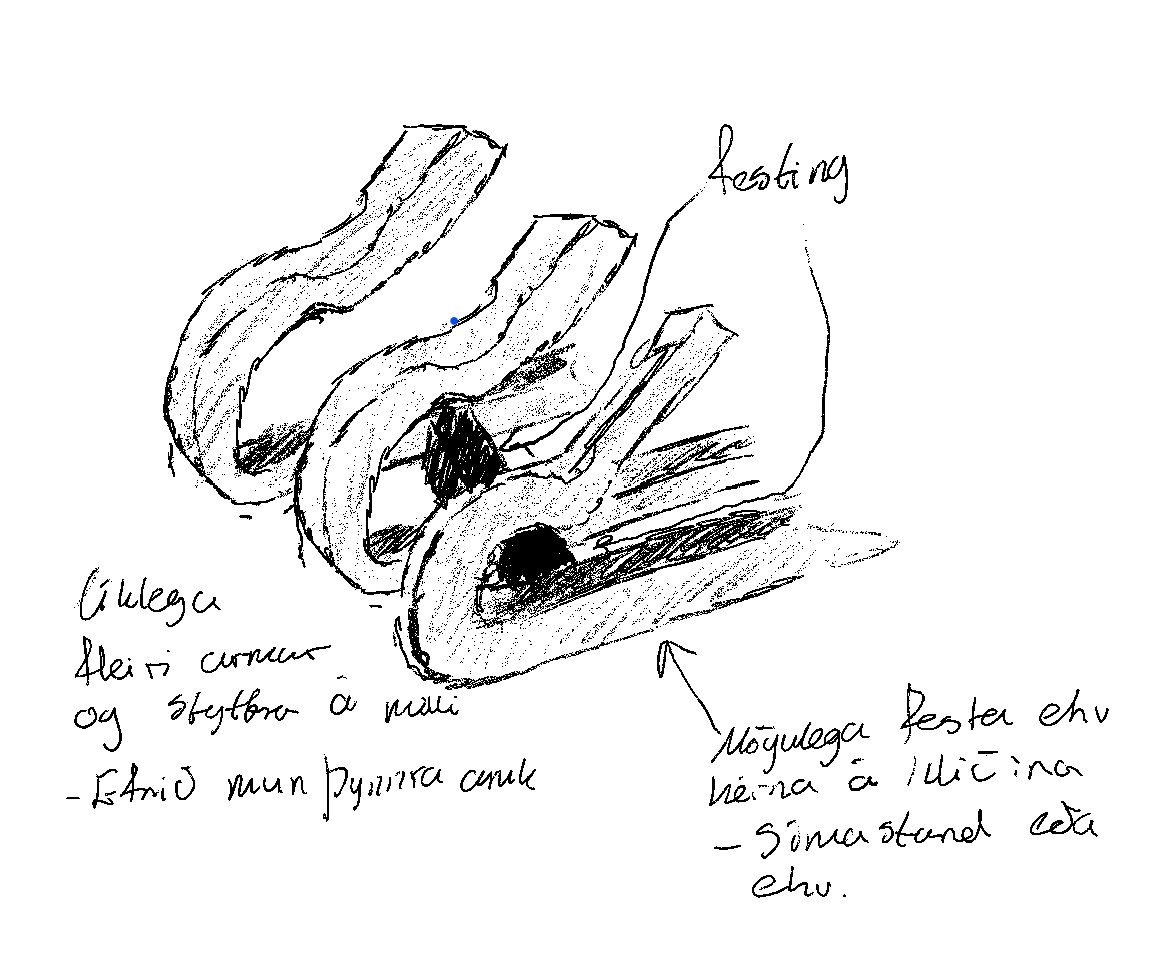 festing
líklega
fleiri armar
og styttra á milli
- Efnið mun þynnra
Mögulega festa ehv
hérna á hliðina
- Símastand eða
ehv.